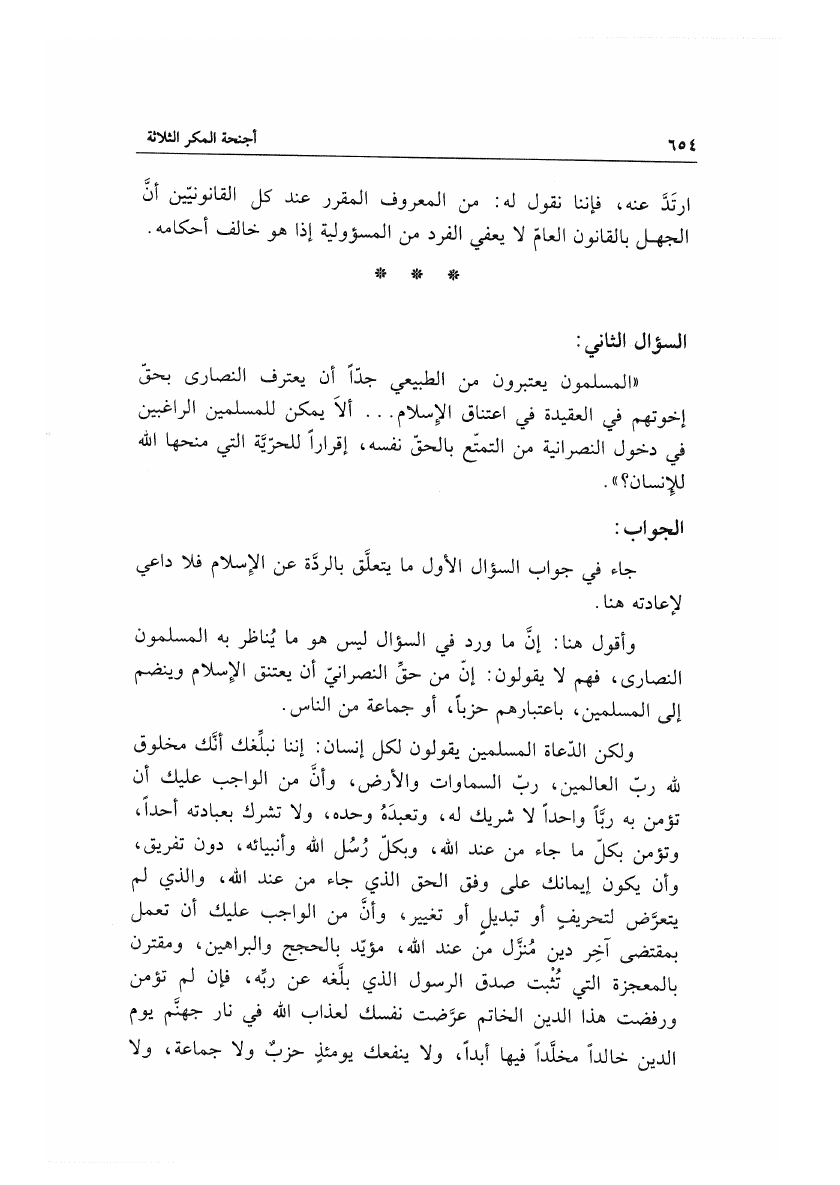 ٦٥٤
أجنحة المكر الثلاثة
ارتَدَّ عنه، فإننا نقول له: من المعروف المقرر عند كل القانونيّين أنَّ
الجهـل بالقانون العامّ لا يعفي الفرد من المسؤولية إذا هو خالف أحكامه.
* * *
السؤال الثاني:
«المسلمون يعتبرون من الطبيعي جدّاً أن يعترف النصارى بحقّ
إخوتهم في العقيدة في اعتناق الإِسلام... ألاَ يمكن للمسلمين الراغبين
في دخول النصرانية من التمتّع بالحقّ نفسه، إقراراً للحرّيَّة التي منحها الله
للإِنسان؟».
الجواب:
جاء في جواب السؤال الأول ما يتعلَّق بالردَّة عن الإِسلام فلا داعي
لإعادته هنا.
وأقول هنا: إنَّ ما ورد في السؤال ليس هو ما يُناظر به المسلمون
النصارى، فهم لا يقولون: إنّ من حقِّ النصرانيّ أن يعتنق الإِسلام وينضم
إلى المسلمين، باعتبارهم حزباً، أو جماعة من الناس.
ولكن الدّعاة المسلمين يقولون لكل إنسان: إننا نبلِّغك أنَّك مخلوق
لله ربّ العالمين، ربّ السماوات والأرض، وأنَّ من الواجب عليك أن
تؤمن به ربَّاً واحداً لا شريك له، وتعبدَهُ وحده، ولا تشرك بعبادته أحداً،
وتؤمن بكلّ ما جاء من عند الله، وبكلّ رُسُل الله وأنبيائه، دون تفريق،
وأن يكون إيمانك على وفق الحق الذي جاء من عند الله، والذي لم
يتعرَّض لتحريفٍ أو تبديلٍ أو تغيير، وأنَّ من الواجب عليك أن تعمل
بمقتضى آخِر دين مُنزَّل من عند الله، مؤيّد بالحجج والبراهين، ومقترن
بالمعجزة التي تُثْبت صدق الرسول الذي بلَّغه عن ربِّه، فإن لم تؤمن
ورفضت هذا الدين الخاتم عرَّضت نفسك لعذاب الله في نار جهنَّم يوم
الدين خالداً مخلَّداً فيها أبداً، ولا ينفعك يومئذٍ حزبٌ ولا جماعة، ولا